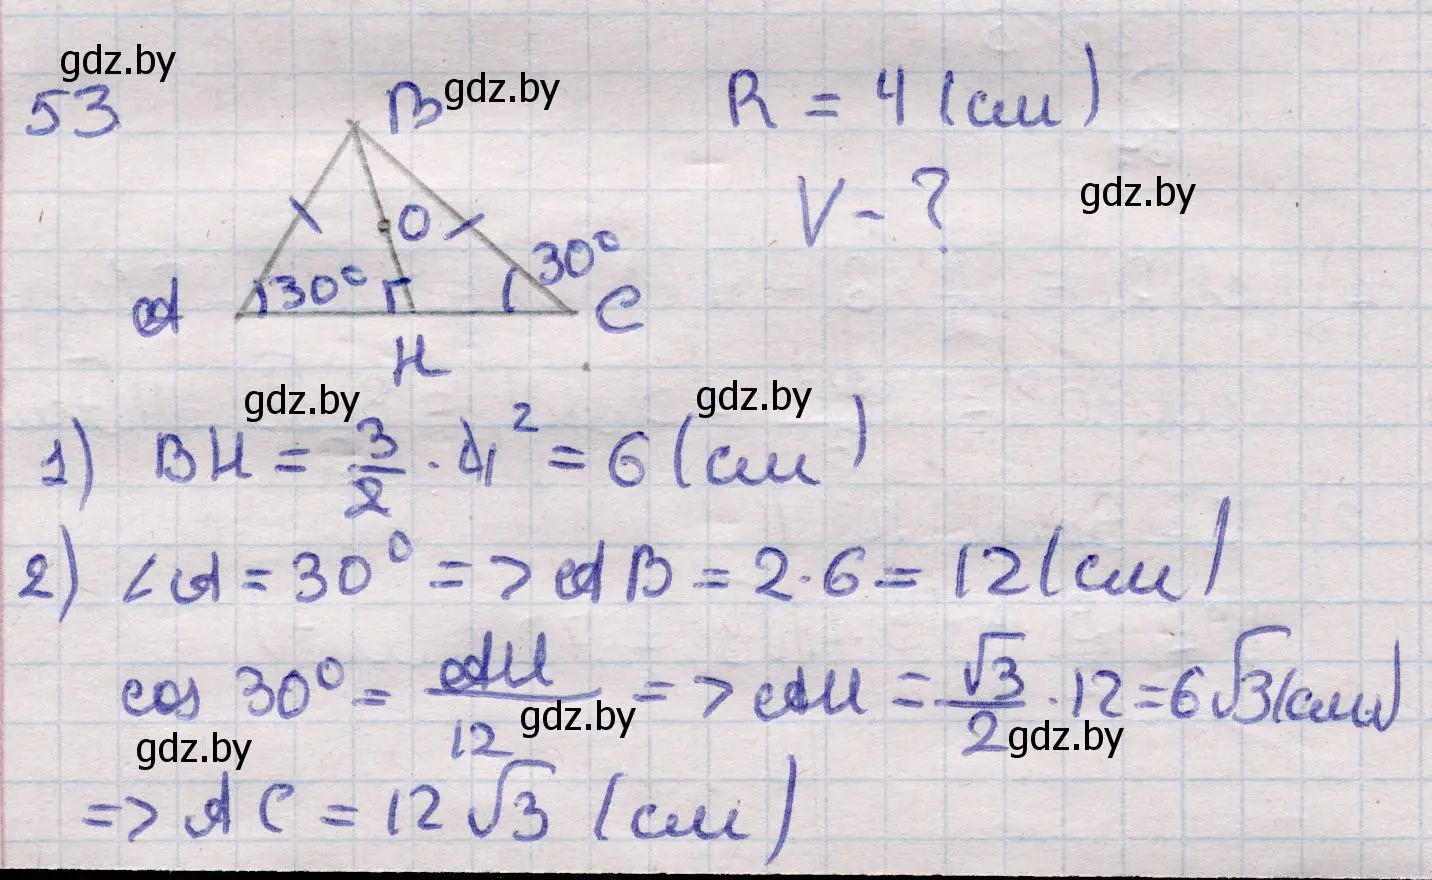 gdz.by
53
B gdz.by R = 4 (см)
gdz.by
V - ?
O
30°
A 30° C
H
gdz.by gdz.by
1) BH = 3/2 · 4² = 6 (см)
2) ∠A = 30° => AB = 2 · 6 = 12 (см)
cos 30° = AH/12 => AH = √3/2 · 12 = 6√3 (см)
gdz.by gdz.by gdz.by
=> AC = 12√3 (см)